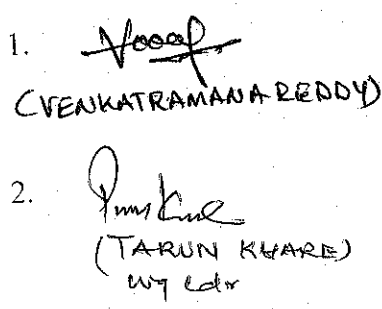 1.
(VENKATRAMANA REDDY)
2.
(TARUN KHARE)
Wg Cdr